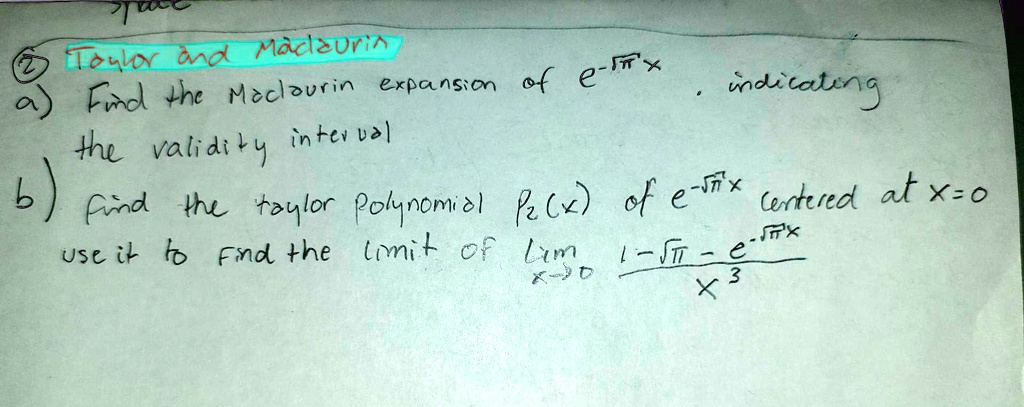 space
② Taylor and Maclaurin
a) Find the Maclaurin expansion of e^{-√π x}, indicating
the validity interval
b) find the taylor Polynomial P₂(x) of e^{-√π x} centered at x=0
use it to Find the limit of lim_{x→0} (1-√π - e^{-√π x}) / x³